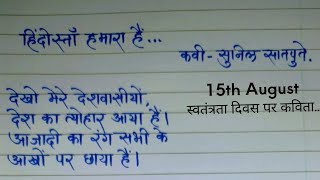 हिंदोस्ताँ हमारा हैं...
कवी- सुनिल सातपुते.
15th August
स्वतंत्रता दिवस पर कविता..
देखो मेरे देशवासीयों,
देश का त्योहार आया हैं।
आज़ादी का रंग सभी के
आखों पर छाया हैं।